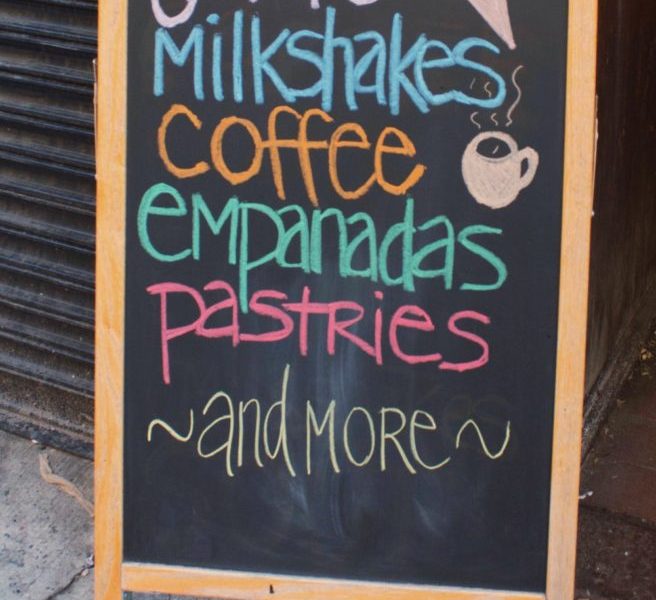 Milkshakes
coffee
empanadas
pastries
~and MORE~